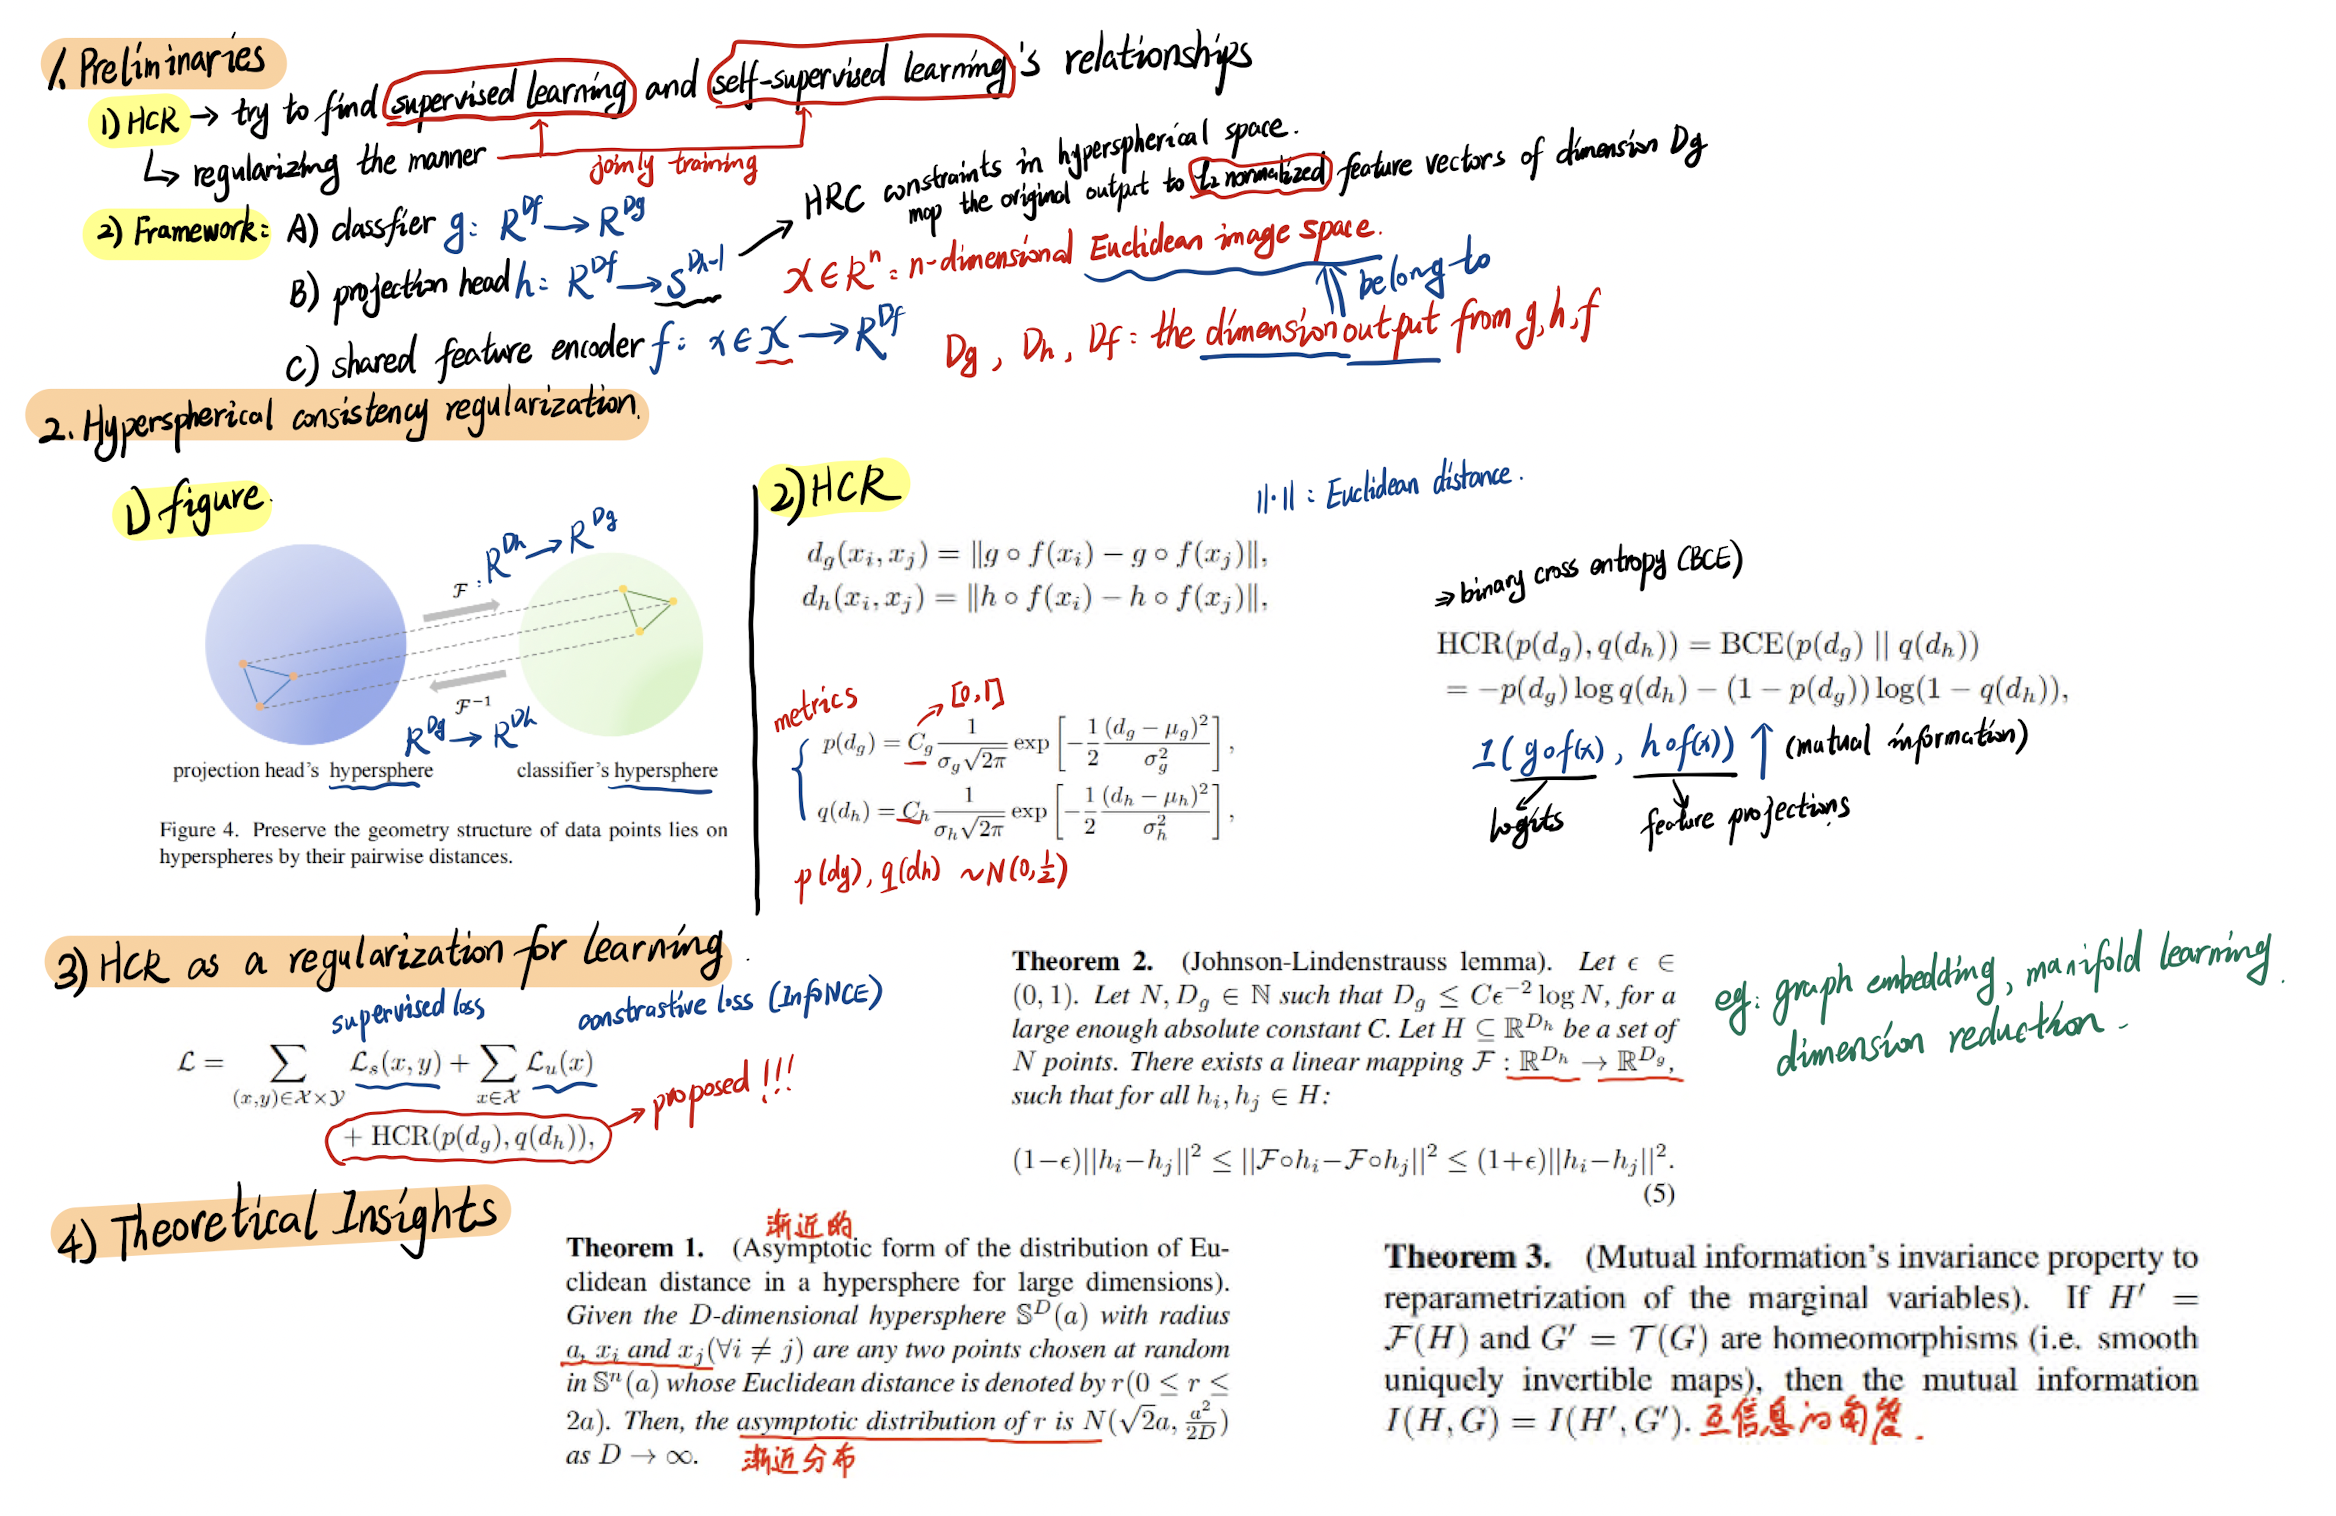 1. Preliminaries
1) HCR → try to find supervised learning and self-supervised learning's relationships
↳ regularizing the manner
joinly training
2) Framework: A) classfier g: R^Df → R^Dg
B) projection head h: R^Df → S^Dh-1
C) shared feature encoder f: x ∈ X → R^Df
HRC constraints in hyperspherical space.
map the original output to L2 normalized feature vectors of dimension Dg
X ∈ R^n: n-dimensional Euclidean image space.
belong to
Dg, Dh, Df: the dimension output from g, h, f
2. Hyperspherical consistency regularization.
1) figure.
F : R^Dh → R^Dg
F^-1
R^Dg → R^Dh
projection head's hypersphere
classifier's hypersphere
Figure 4. Preserve the geometry structure of data points lies on
hyperspheres by their pairwise distances.
2) HCR
||·|| : Euclidean distance.
d_g(x_i, x_j) = ||g ∘ f(x_i) − g ∘ f(x_j)||,
d_h(x_i, x_j) = ||h ∘ f(x_i) − h ∘ f(x_j)||,
metrics
→ [0,1]
p(d_g) = C_g \frac{1}{σ_g√2π} exp [−\frac{1}{2} \frac{(d_g − μ_g)^2}{σ_g^2}],
q(d_h) = C_h \frac{1}{σ_h√2π} exp [−\frac{1}{2} \frac{(d_h − μ_h)^2}{σ_h^2}],
p(dg), q(dh) ~ N(0, 1/2)
⇒ binary cross entropy (BCE)
HCR(p(d_g), q(d_h)) = BCE(p(d_g) || q(d_h))
= −p(d_g) log q(d_h) − (1 − p(d_g)) log(1 − q(d_h)),
I(g∘f(x), h∘f(x)) ↑ (mutual information)
logits
feature projections
3) HCR as a regularization for learning.
supervised loss
constrastive loss (InfoNCE)
L = ∑_{(x,y)∈X×Y} L_s(x, y) + ∑_{x∈X} L_u(x)
+ HCR(p(d_g), q(d_h)),
→ proposed !!!
Theorem 2. (Johnson-Lindenstrauss lemma). Let ϵ ∈
(0, 1). Let N, D_g ∈ ℕ such that D_g ≤ Cϵ^−2 log N, for a
large enough absolute constant C. Let H ⊆ ℝ^{D_h} be a set of
N points. There exists a linear mapping F : ℝ^{D_h} → ℝ^{D_g},
such that for all h_i, h_j ∈ H:
(1−ϵ)||h_i−h_j||^2 ≤ ||F∘h_i−F∘h_j||^2 ≤ (1+ϵ)||h_i−h_j||^2.
(5)
eg: graph embedding, manifold learning.
dimension reduction.
4) Theoretical Insights
渐近的
Theorem 1. (Asymptotic form of the distribution of Eu-
clidean distance in a hypersphere for large dimensions).
Given the D-dimensional hypersphere 𝕊^D(a) with radius
a, x_i and x_j(∀i ≠ j) are any two points chosen at random
in 𝕊^n(a) whose Euclidean distance is denoted by r(0 ≤ r ≤
2a). Then, the asymptotic distribution of r is N(√2a, \frac{a^2}{2D})
as D → ∞.
渐近分布
Theorem 3. (Mutual information's invariance property to
reparametrization of the marginal variables). If H′ =
F(H) and G′ = T(G) are homeomorphisms (i.e. smooth
uniquely invertible maps), then the mutual information
I(H, G) = I(H′, G′). 互信息的角度.